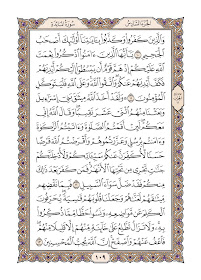 الجزء السادس سورة المائدة
وَالَّذِينَ كَفَرُوا وَكَذَّبُوا بِـَٔايَٰتِنَآ أُولَٰٓئِكَ أَصْحَٰبُ
الْجَحِيمِ ۝ يَٰٓأَيُّهَا الَّذِينَ ءَامَنُوا اذْكُرُوا نِعْمَتَ
اللَّهِ عَلَيْكُمْ إِذْ هَمَّ قَوْمٌ أَن يَبْسُطُوٓا إِلَيْكُمْ أَيْدِيَهُمْ
فَكَفَّ أَيْدِيَهُمْ عَنكُمْ وَاتَّقُوا اللَّهَ وَعَلَى اللَّهِ فَلْيَتَوَكَّلِ
الْمُؤْمِنُونَ ۝ وَلَقَدْ أَخَذَ اللَّهُ مِيثَٰقَ بَنِىٓ إِسْرَٰٓءِيلَ
وَبَعَثْنَا مِنْهُمُ اثْنَىْ عَشَرَ نَقِيبًا وَقَالَ اللَّهُ إِنِّى
مَعَكُمْ لَئِنْ أَقَمْتُمُ الصَّلَوٰةَ وَءَاتَيْتُمُ الزَّكَوٰةَ
وَءَامَنتُم بِرُسُلِى وَعَزَّرْتُمُوهُمْ وَأَقْرَضْتُمُ اللَّهَ قَرْضًا
حَسَنًا لَّأُكَفِّرَنَّ عَنكُمْ سَيِّـَٔاتِكُمْ وَلَأُدْخِلَنَّكُمْ
جَنَّٰتٍ تَجْرِى مِن تَحْتِهَا الْأَنْهَٰرُ فَمَن كَفَرَ بَعْدَ ذَٰلِكَ
مِنكُمْ فَقَدْ ضَلَّ سَوَآءَ السَّبِيلِ ۝ فَبِمَا نَقْضِهِم
مِّيثَٰقَهُمْ لَعَنَّٰهُمْ وَجَعَلْنَا قُلُوبَهُمْ قَٰسِيَةً يُحَرِّفُونَ
الْكَلِمَ عَن مَّوَاضِعِهِ وَنَسُوا حَظًّا مِّمَّا ذُكِّرُوا
بِهِ وَلَا تَزَالُ تَطَّلِعُ عَلَىٰ خَآئِنَةٍ مِّنْهُمْ إِلَّا قَلِيلًا مِّنْهُمْ
فَاعْفُ عَنْهُمْ وَاصْفَحْ إِنَّ اللَّهَ يُحِبُّ الْمُحْسِنِينَ ۝
١٠٩